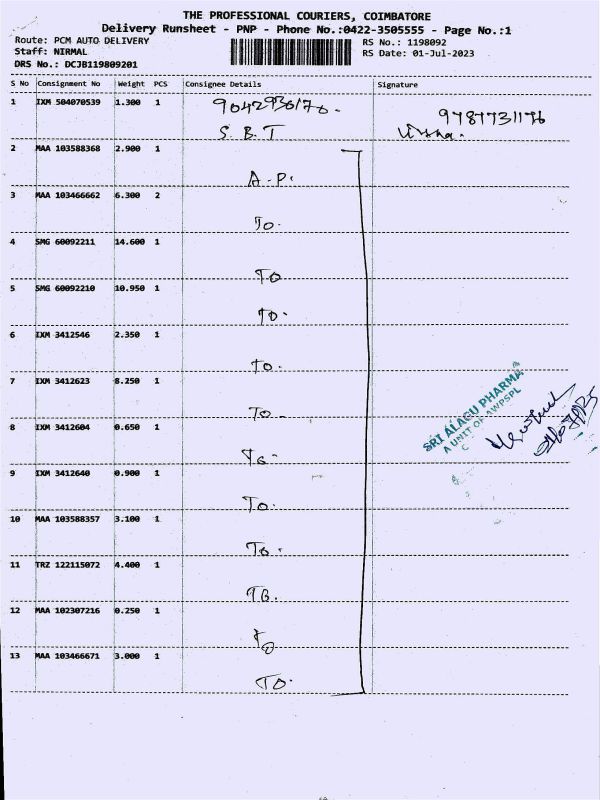 THE PROFESSIONAL COURIERS, COIMBATORE
Delivery Runsheet - PNP - Phone No.:0422-3505555 - Page No.:1
Route: PCM AUTO DELIVERY RS No.: 1198092
Staff: NIRMAL RS Date: 01-Jul-2023
DRS No.: DCJB119809201
S No Consignment No Weight PCS Consignee Details Signature
1 IXM 504070539 1.300 1
S. B. T
2 MAA 103588368 2.900 1
A.P.
3 MAA 103466662 6.300 2
TO.
4 SMG 60092211 14.600 1
TO
5 SMG 60092210 10.950 1
TO.
6 IXM 3412546 2.350 1
TO.
7 IXM 3412623 8.250 1
TO
8 IXM 3412604 0.650 1
9 IXM 3412640 0.900 1
TO.
10 MAA 103588357 3.100 1
TO.
11 TRZ 122115072 4.400 1
12 MAA 102307216 0.250 1
TO
13 MAA 103466671 3.000 1
TO.
SRI ALAGU PHARMA
A UNIT OF AWPSPL